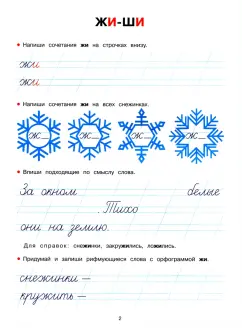 ЖИ-ШИ
Напиши сочетания жи на строчках внизу.
жи
жи
Напиши сочетания жи на всех снежинках.
ж_ ж_ ж_ ж_
Впиши подходящие по смыслу слова.
За окном белые
. Тихо
они на землю.
Для справок: снежинки, закружились, ложились.
Придумай и запиши рифмующиеся слова с орфограммой жи.
снежинки –
кружить –
2